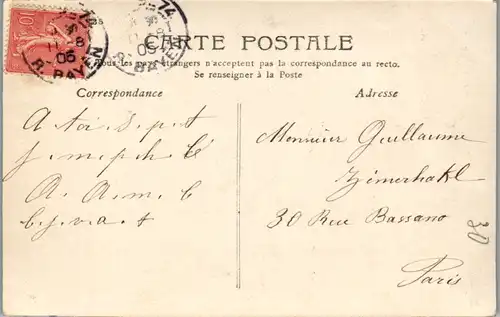 CARTE POSTALE
Tous les pays étrangers n'acceptent pas la correspondance au recto.
Se renseigner à la Poste
Correspondance
Adresse
A toi S. p. t
f. m. p. ch. C
A. A. m. C
b. j. v. a. t
Monsieur Guillaume
Zimerhakl
30 Rue Bassano
Paris
30
10
05
R. BAYEN
05
BAYEN